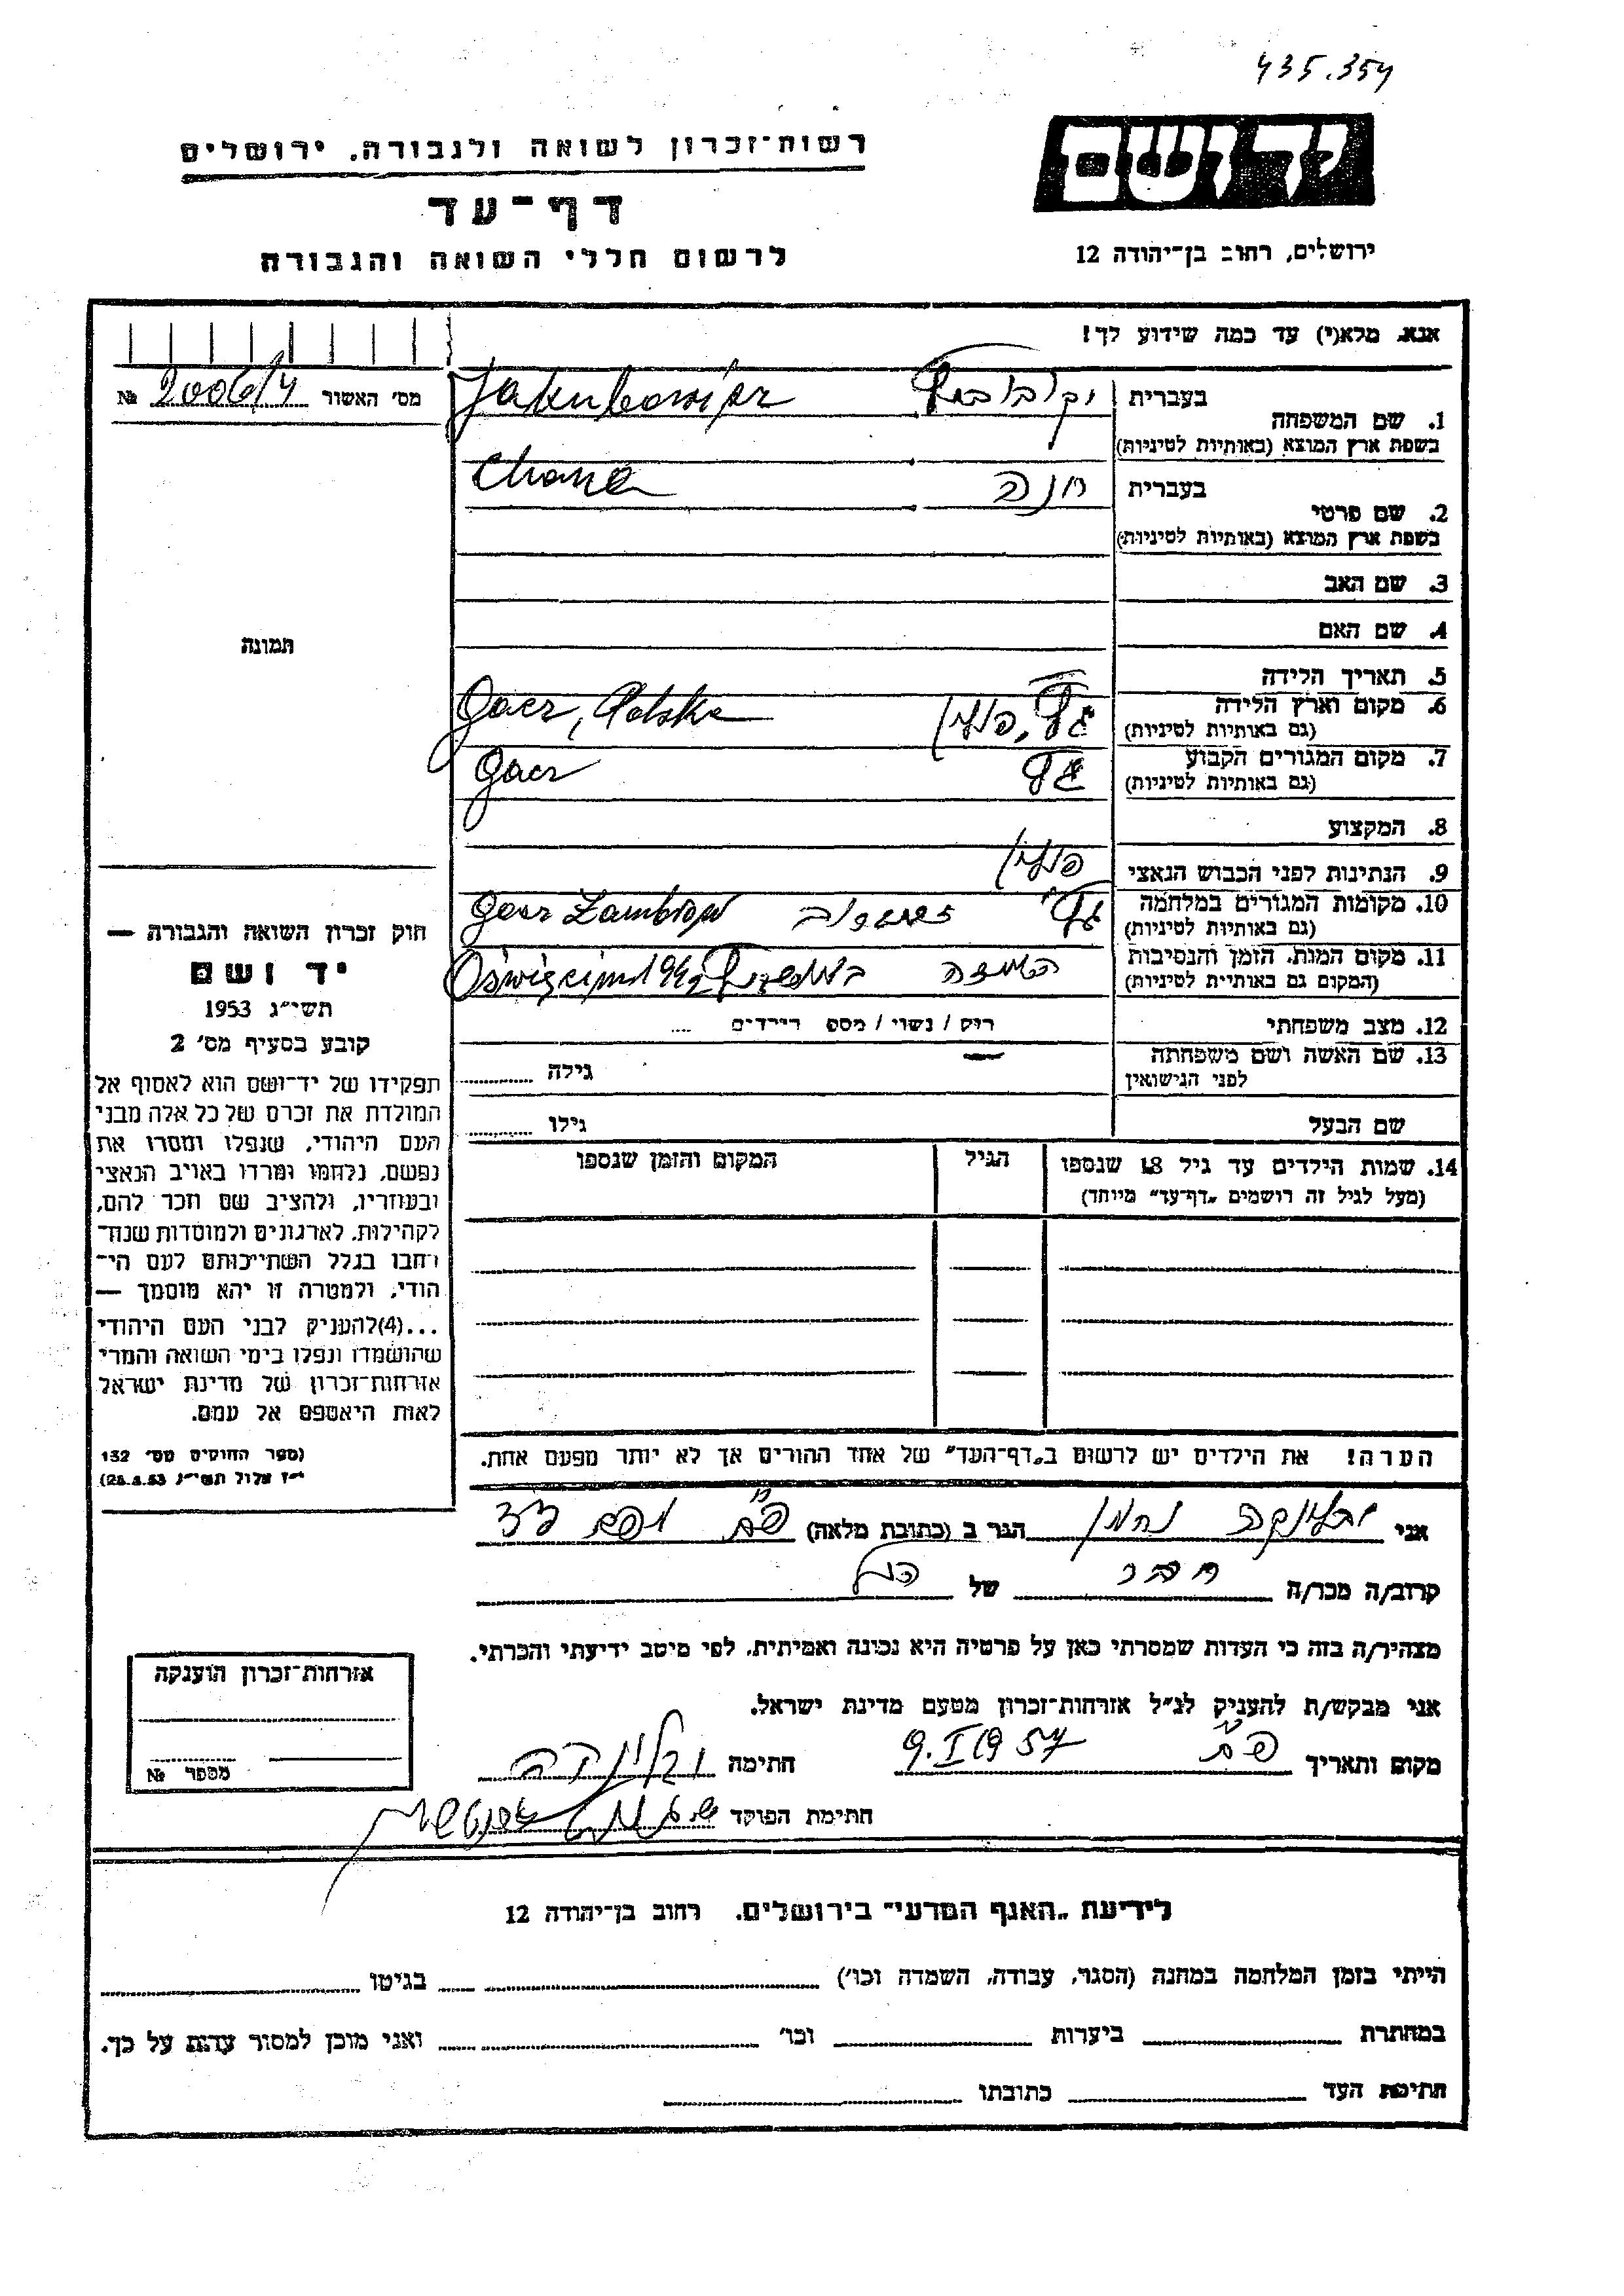 435.354
יד ושם
ירושלים, רחוב בן־יהודה 12
רשות־זכרון לשואה ולגבורה, ירושלים
דף־עד
לרשום חללי השואה והגבורה
אנא, מלא(י) עד כמה שידוע לך!
מס' האשור № 2006/4
1. שם המשפחה בעברית יקובוביץ Jakubowicz
בשפת ארץ המוצא (באותיות לטיניות)
2. שם פרטי בעברית חנה Chana
בשפת ארץ המוצא (באותיות לטיניות)
3. שם האב
4. שם האם
5. תאריך הלידה
6. מקום וארץ הלידה פולין Polska
(גם באותיות לטיניות)
7. מקום המגורים הקבוע
(גם באותיות לטיניות)
8. המקצוע
9. הנתינות לפני הכבוש הנאצי פולין
10. מקומות המגורים במלחמה Zambrow
(גם באותיות לטיניות)
11. מקום המות, הזמן והנסיבות Oświęcim 1942
(המקום גם באותיות לטיניות)
12. מצב משפחתי רווק / נשוי / מספר הילדים ....
13. שם האשה ושם משפחתה גילה
לפני הנישואין
שם הבעל גילו
14. שמות הילדים עד גיל 18 שנספו הגיל המקום והזמן שנספו
(מעל לגיל זה רושמים „דף־עד" מיוחד)
הערה! את הילדים יש לרשום ב„דף־העד" של אחד ההורים אך לא יותר מפעם אחת.
תמונה
חוק זכרון השואה והגבורה —
יד ושם
תשי"ג 1953
קובע בסעיף מס' 2
תפקידו של יד־ושם הוא לאסוף אל
המולדת את זכרם של כל אלה מבני
העם היהודי, שנפלו ומסרו את
נפשם, נלחמו ומרדו באויב הנאצי
ובעוזריו, ולהציב שם וזכר להם,
לקהילות, לארגונים ולמוסדות שנח־
רבו בגלל השתייכותם לעם הי־
הודי, ולמטרה זו יהא מוסמך —
...(4)להעניק לבני העם היהודי
שהושמדו ונפלו בימי השואה והמרי
אזרחות־זכרון של מדינת ישראל
לאות היאספם אל עמם.
(ספר החוקים מס' 132
י"ז אלול תשי"ג 28.8.53)
אני נחמן הגר ב (כתובת מלאה)
קרוב/ה מכר/ה חבר של
מצהיר/ה בזה כי העדות שמסרתי כאן על פרטיה היא נכונה ואמיתית, לפי מיטב ידיעתי והכרתי.
אני מבקש/ת להעניק לנ"ל אזרחות־זכרון מטעם מדינת ישראל.
מקום ותאריך 9.I 1957 חתימה
חתימת הפוקד
אזרחות־זכרון הוענקה
מספר №
לידיעת „האגף המדעי" בירושלים, רחוב בן־יהודה 12
הייתי בזמן המלחמה במחנה (הסגר, עבודה, השמדה וכו') בגיטו
במחתרת ביערות וכו' ואני מוכן למסור עדות על כך.
חתימת העד כתובתו